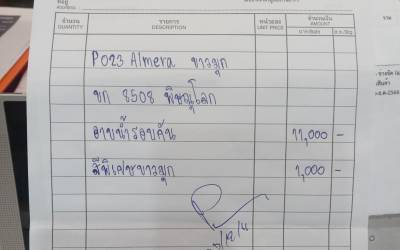 ที่อยู่
ADDRESS
จำนวน รายการ หน่วยละ จำนวนเงิน
QUANTITY DESCRIPTION UNIT PRICE AMOUNT
P023 Almera ขาวมุก
ขก 8508 พิษณุโลก
อาบน้ำรอบคัน 11,000 -
สีพิเศษขาวมุก 1,000 -